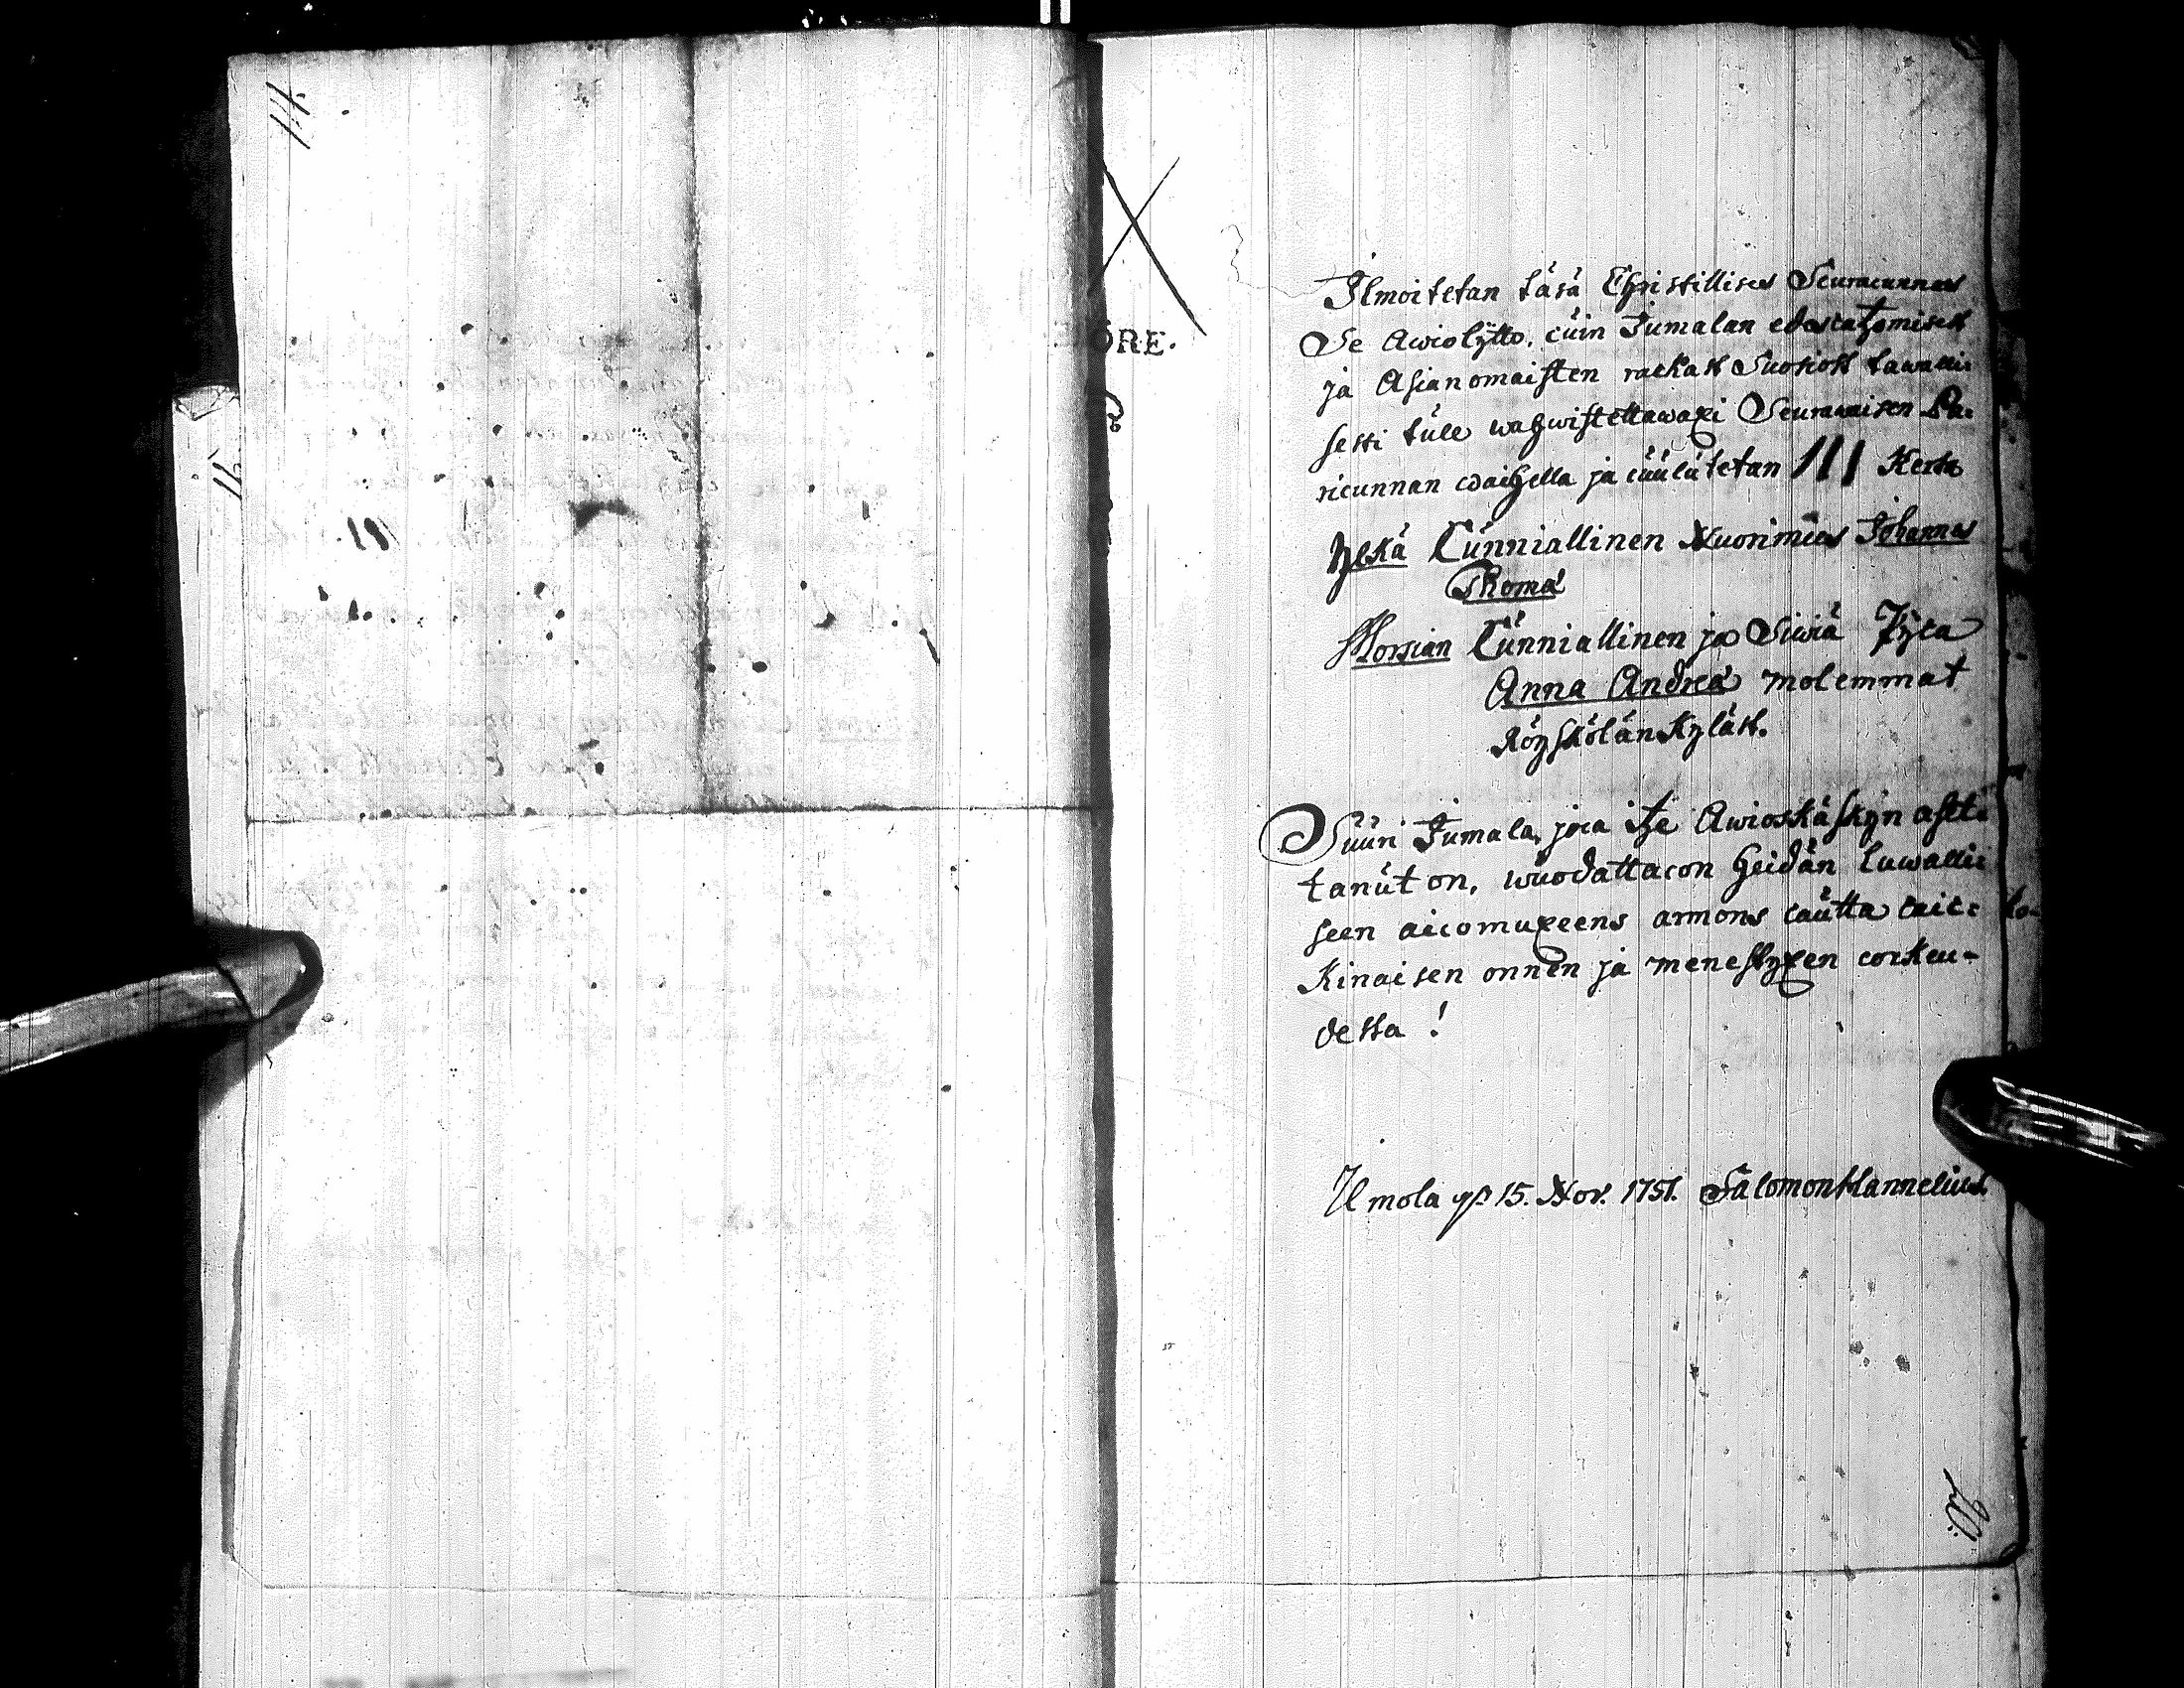 11.
11.
ORE.
Ilmoitetan täsä Christillises Seuracunnas
Se Awiolijtto, cuin Jumalan edescatzomisest
ja Asianomaisten rackast Suosiost lawalli:
sesti tule wahwistettawaxi Seurawaisen Pa:
ricunnan waihella ja cuulutetan III Kerta
Yljkä Cunniallinen Nuorimies Johannes
Thomæ
Morsian Cunniallinen ja Siwiä Pijca
Anna Andreæ molemmat
Röyskölän Kyläst.
Suuri Jumala, joca itze Awioskäskyn asetta
tanut on, wuodattacon heidän luwalli
seen aicomuxeens armons cautta caic:
Kinaisen onnen ja menestyxen corkeu-
desta!
Ilmola 15. Nov. 1751. Salomon Hannelius.
20.